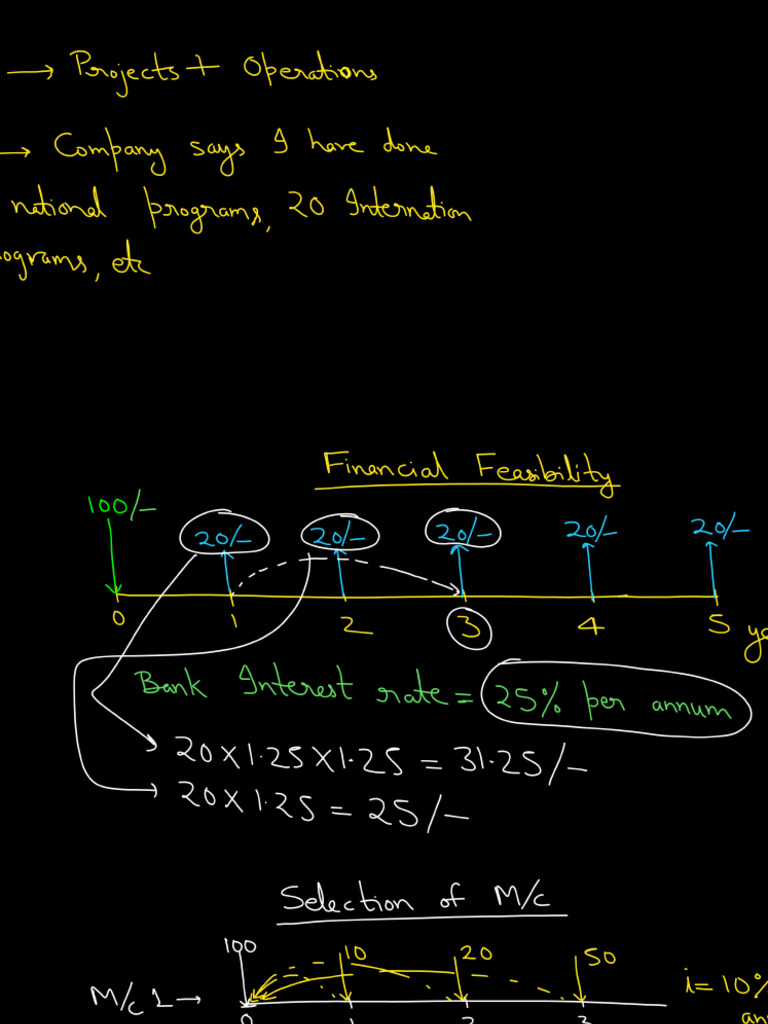 → Projects + Operations
→ Company says I have done
national programs, 20 Internation
ograms, etc
Financial Feasibility
100/-
20/- 20/- 20/- 20/- 20/-
0 1 2 3 4 5
Bank Interest rate = 25% per annum
20×1.25×1.25 = 31.25/-
20×1.25 = 25/-
Selection of M/c
100 10 20 50
M/c 1 → i= 10%